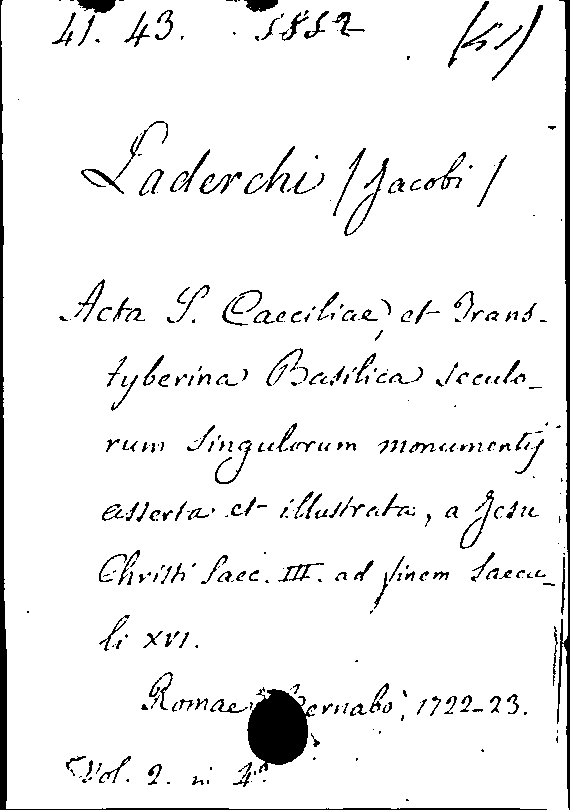 41. 43. 1852
Laderchi (Jacobi)
Acta S. Caeciliae, et Trans-
tyberina Basilica seculo-
rum singulorum monumentis
asserta et illustrata, a Jesu
Christi Saec. III. ad finem Saecu-
li XVI.
Romae 1722-23.
Vol. 2. in 4º